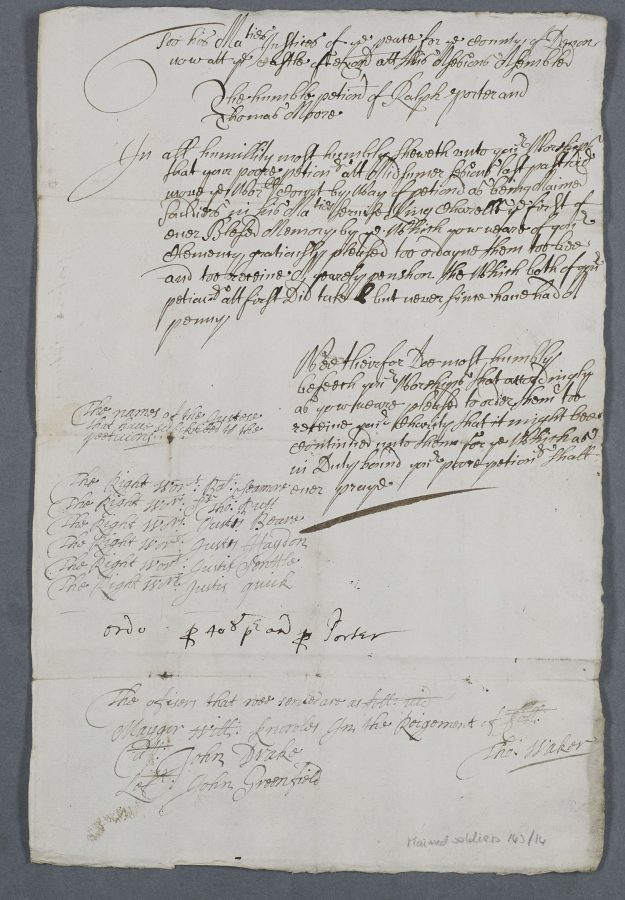 Too his Maties Justices of ye peace for ye County of Devon
now att ye Castle of Exon att this Sesions Asembled
The humble petion of Ralph Porter and
Thomas Moore
In all humillity most humbly sheweth unto your Worships
that your poore petionrs att Midsumer Sesions last past
move ye Worpll Court by Way of petion as being Maimed
Souldiers in his Maties Servise King Charells ye first of
ever Blesed Memory by ye Which your weare of your
Clemency gratiously pleased too ordayne them too bee
and too receive a yearely penshon the Which both of your
petionrs att first Did take but never since have had a
penny
Wee theirfor Doe most humbly
beseech your Worships that accordingly
as you weare pleased to order them too
receive your Charity that it might bee
Continued unto them for ye Which as
in Duty bound your poore petionrs shall
ever praye
The names of the Justece
that have subscribed to the
peticions
The Right Worr Seamore
The Right Worr Sr Tho:
The Right Worr Justis Beare
The Right Worr Justis Haydon
The Right Worr Justis
The Right Worr Justis quick
ordo p 40s pr an p Porter
The ofisers that wee served are as foll: vid
Maygor Will: Knowles In the Reigement of
Cap: John Drake
Left: John Greenfield
Tho: Waker
Maimed soldiers 143/14